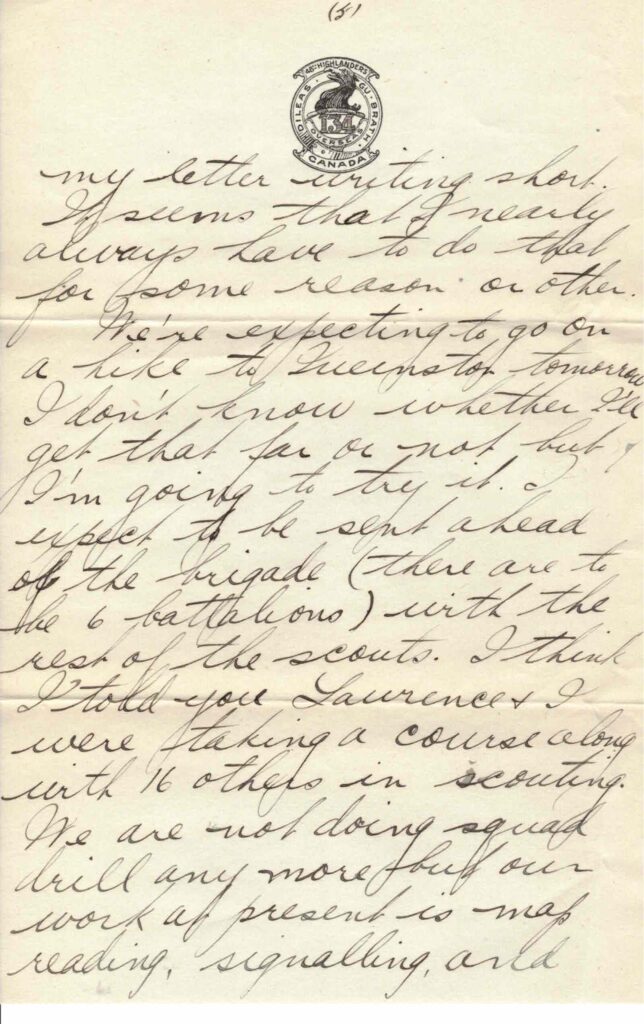 (5)
48TH HIGHLANDERS
DILEAS GU BRATH
134
OVERSEAS
CANADA
my letter writing short.
It seems that I nearly
always have to do that
for some reason or other.
We're expecting to go on
a hike to Queinston tomorrow
I don't know whether I'll
get that far or not but
I'm going to try it. I
expect to be sent ahead
of the brigade (there are to
be 6 battalions) with the
rest of the scouts. I think
I told you Laurence & I
were taking a course along
with 16 others in scouting.
We are not doing squad
drill any more but our
work at present is map
reading, signalling, and